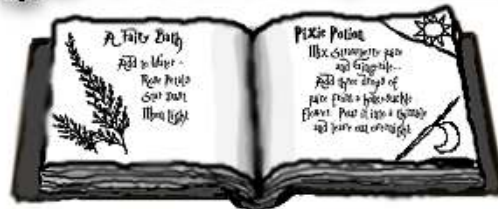 A Fairy Bath
Add to Water -
Rose Petals
Star Dust
Moon Light
Pixie Potion
Mix Strawberry juice
and Gingerale...
Add three drops of
juice from a honeysuckle
flower. Pour it into a thimble
and leave out overnight